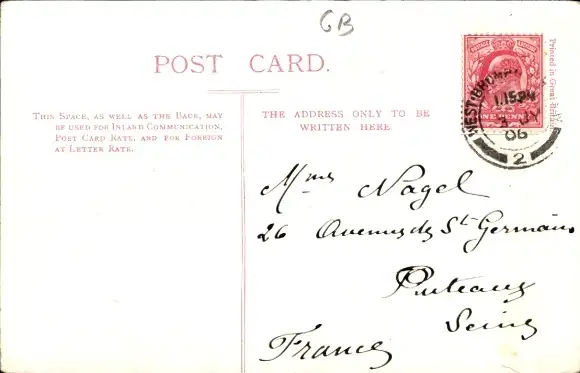 GB
POST CARD.
THIS SPACE, AS WELL AS THE BACK, MAY
BE USED FOR INLAND COMMUNICATION,
POST CARD RATE, AND FOR FOREIGN
AT LETTER RATE.
THE ADDRESS ONLY TO BE
WRITTEN HERE.
POSTAGE REVENUE
ONE PENNY
1.15 PM
06
2
Printed in Great Britain
Mmes Nagel
26 Avenue des St Germain
Puteaux
Seine
France